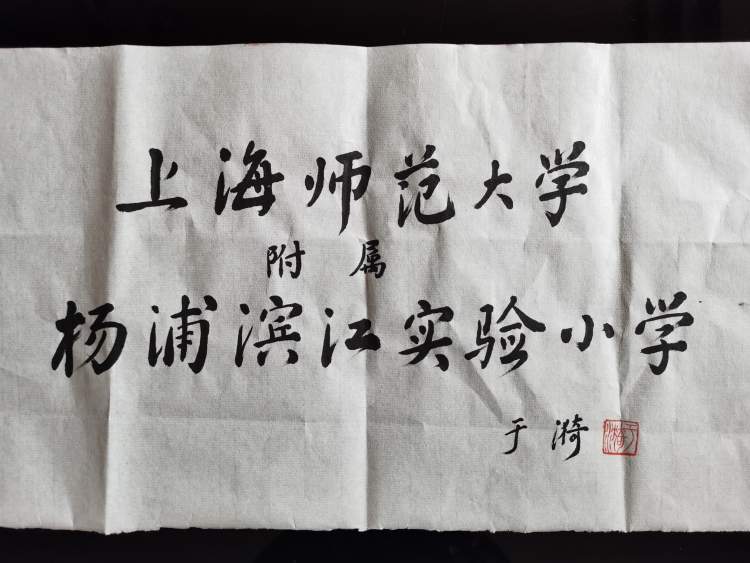 上海师范大学
附属
杨浦滨江实验小学
于漪